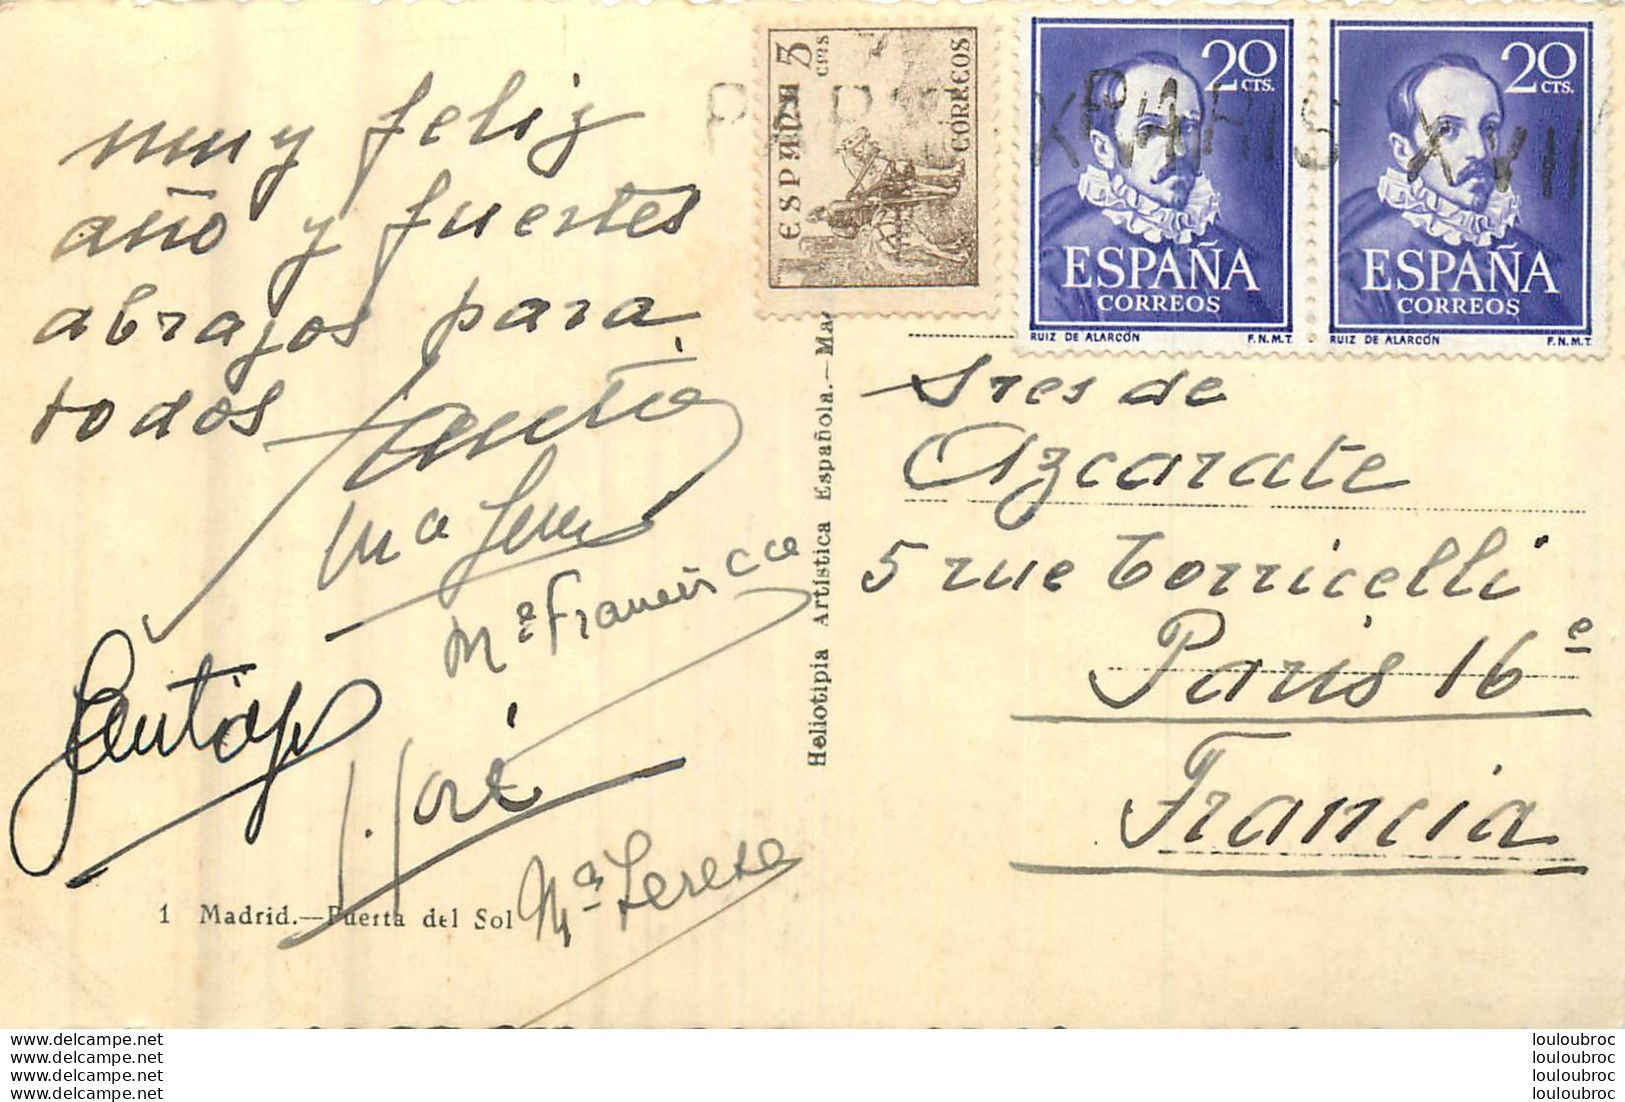 muy feliz
año y fuertes
abrazos para
todos
Mª Francisca
Santiago
José
Mª Teresa
1 Madrid.—Puerta del Sol
Heliotipia Artística Española.—Ma
ESPAÑA 5 cms
CORREOS
20 CTS.
ESPAÑA
CORREOS
RUIZ DE ALARCÓN F.N.M.T.
20 CTS.
ESPAÑA
CORREOS
RUIZ DE ALARCÓN F.N.M.T.
PARIS XVII
Sres de
Azcarate
5 rue Torricelli
Paris 16e
Francia
www.delcampe.net
www.delcampe.net
www.delcampe.net
www.delcampe.net
louloubroc
louloubroc
louloubroc
louloubroc